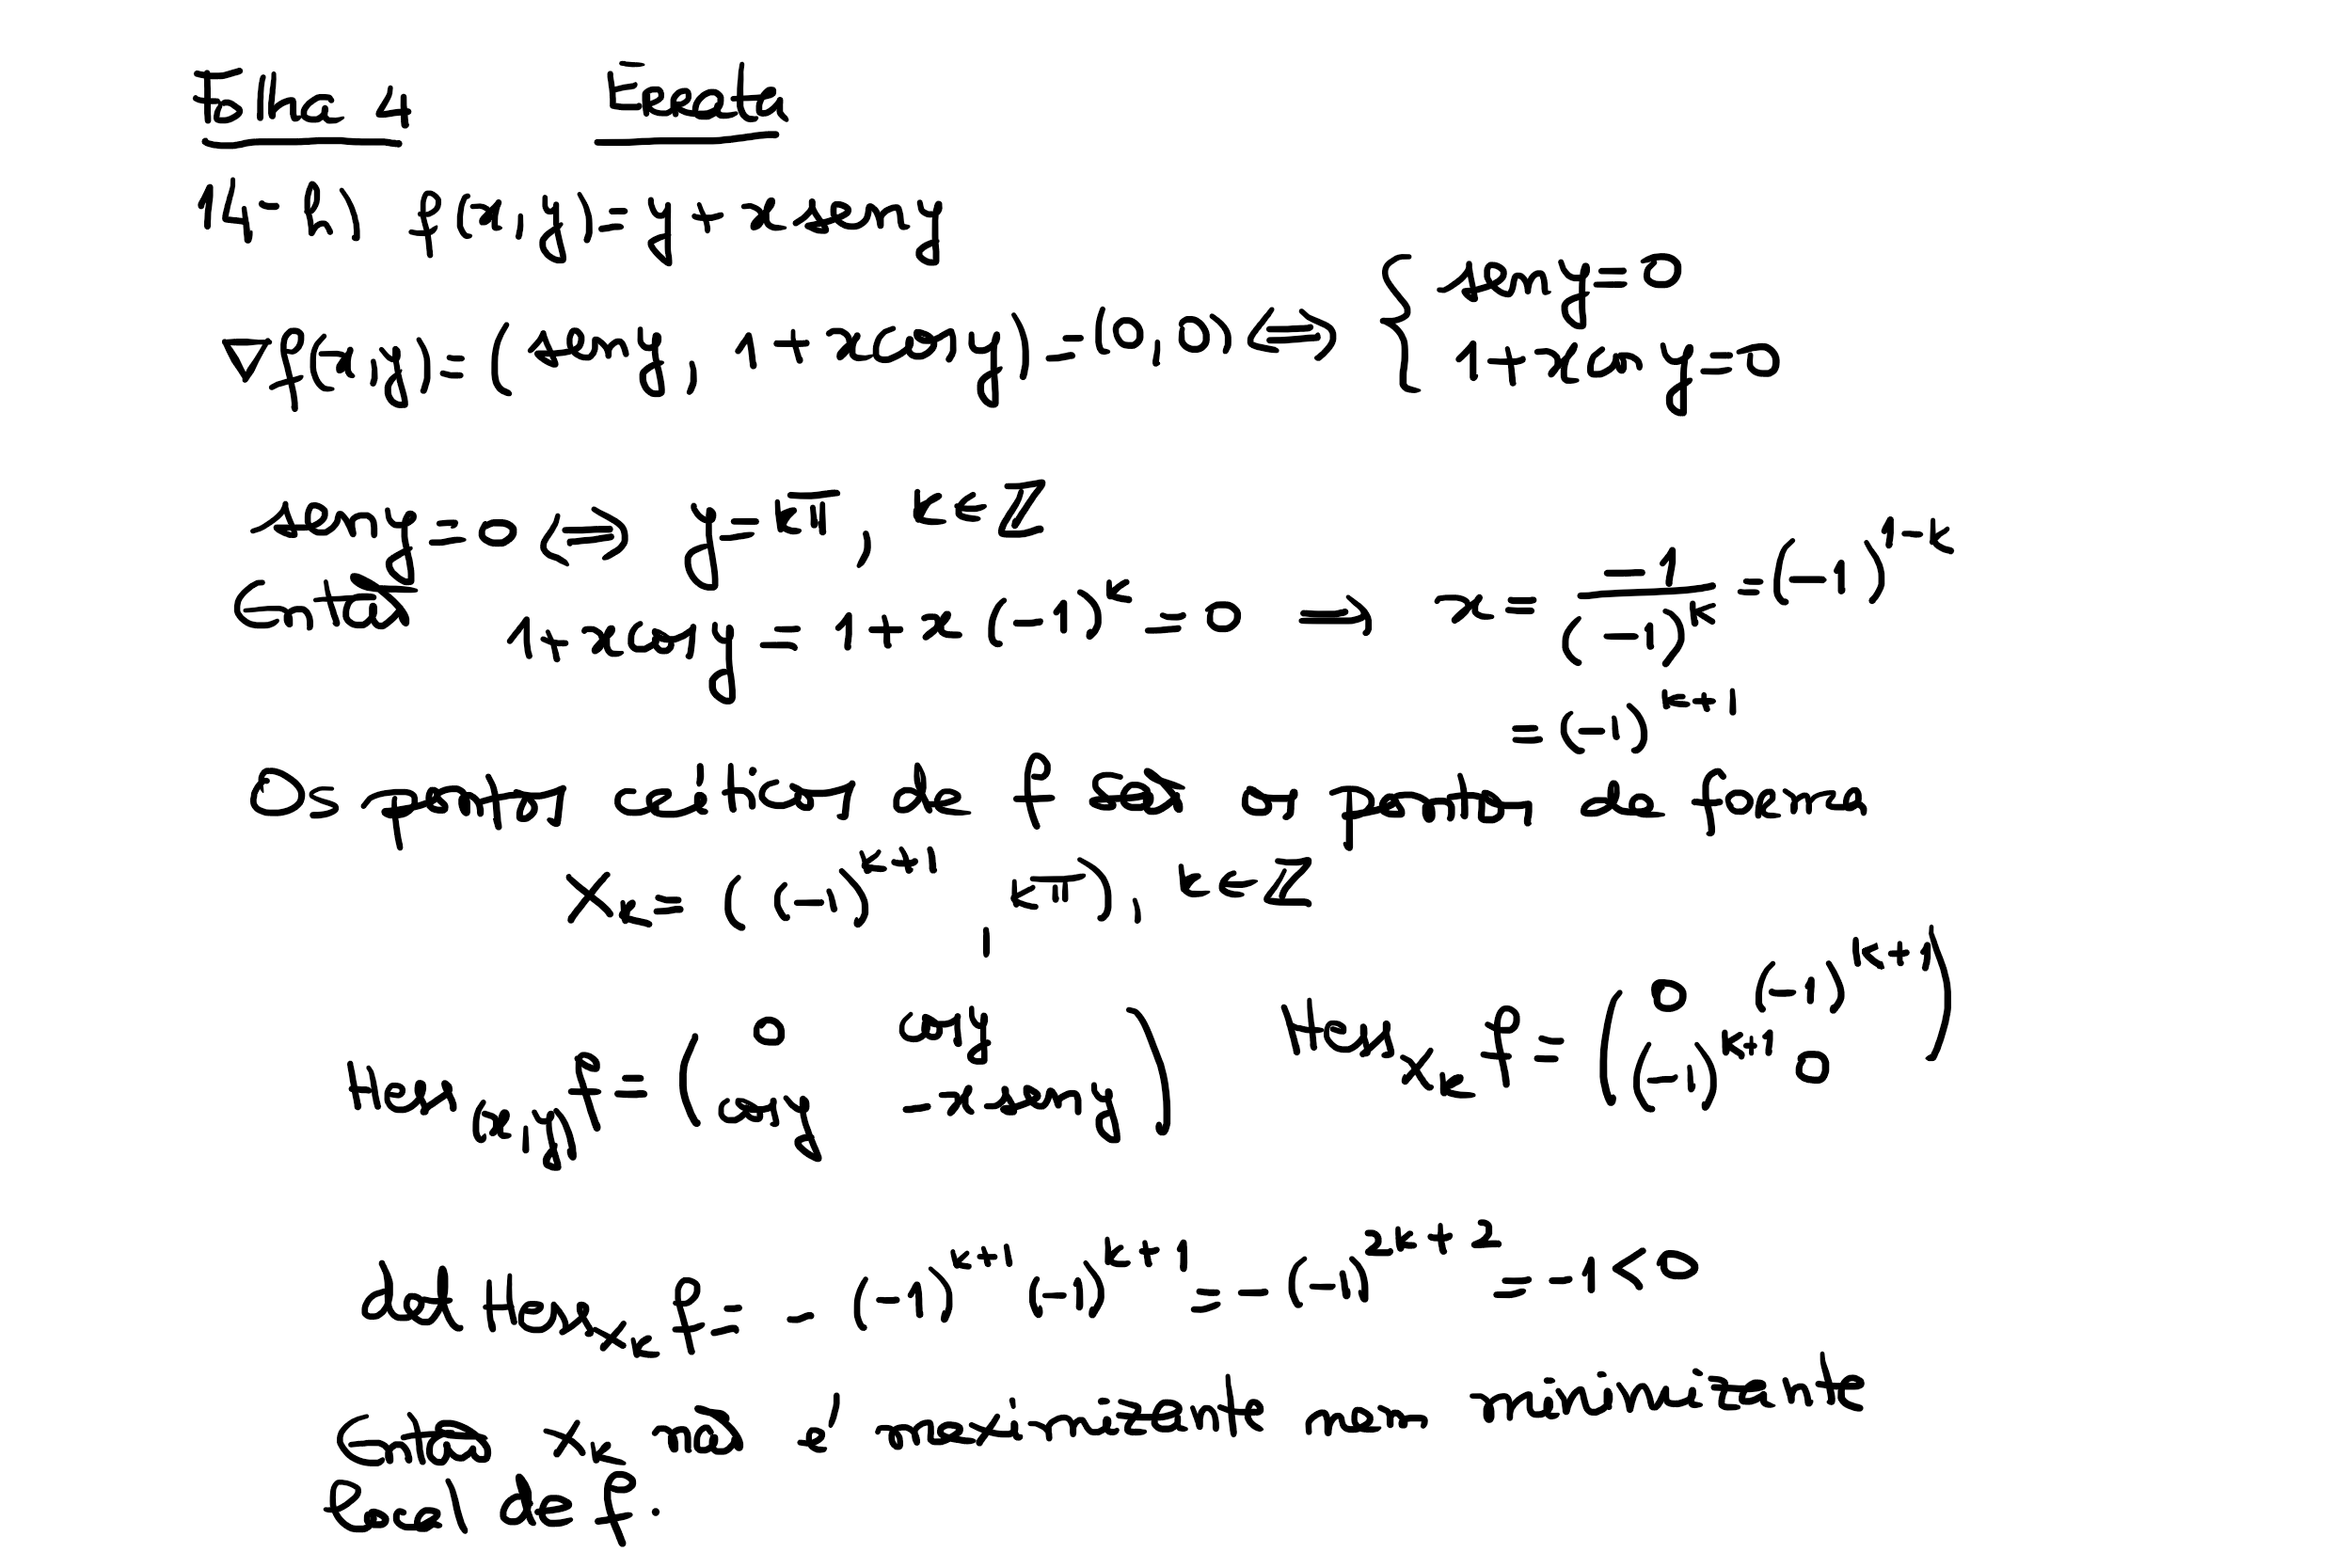 Folha 4 Errata
14-h) f(x,y)=y+x sen y
∇f(x,y)=(sen y, 1+x cos y)=(0,0) ⇔ { sen y=0
1+x cos y=0
sen y=0 ⇔ y=kπ, k∈ℤ
Então 1+x cos y = 1+x (-1)^k = 0 ⇒ x = -1/(-1)^k = (-1)^{1-k}
= (-1)^{k+1}
Os pontos críticos de f são os pontos da forma
X_k = ((-1)^{k+1}, kπ), k∈ℤ
Hess_{(x,y)} f = ( 0 cos y ; cos y -x sen y ) Hess_{X_k} f = ( 0 (-1)^{k+1} ; (-1)^{k+1} 0 )
det Hess_{X_k} f = -(-1)^{k+1} (-1)^{k+1} = -(-1)^{2k+2} = -1<0
Então X_k não é maximizante nem minimizante
local de f.